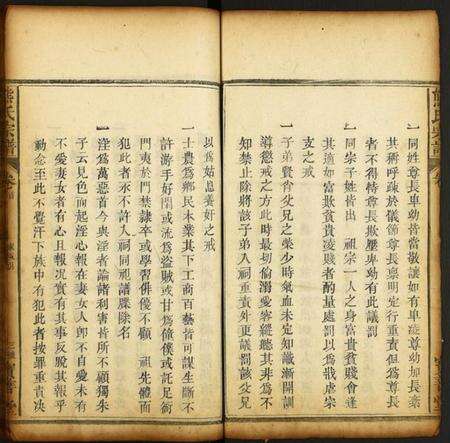 熊氏宗譜
一同姓尊長卑幼皆當敬讓如有卑幼尊幼如長輩
其稱呼疎於儀節尊長稟明定行重責但為尊長
者不得恃尊長欺壓卑幼有此議罰
一同宗子姓皆出　祖宗一人之身富貴貧賤會逢
其適如富欺貧貴凌賤者酌量處罰以為戕虐宗
支之戒
一子弟賢肖父兄之榮少時氣血未定知識漸開訓
導懲戒之方此時最切倘溺愛客縱聽其非為不
知禁止除將該子弟入祠重責外更議罰該父兄
以為姑息養奸之戒
一士農為鄉民本業其下工商百藝皆可謀生斷不
許游手好閒或流為盜賊或甘為僮僕或託足衙
門夷於門禁隸卒或學習俳優不顧　祖先體面
犯此者永不許入祠同祀譜牒除名
一淫為萬惡首今與淫者論諸利害皆所不顧獨朱
子云見色而起淫心報在妻女人卽不自愛未有
不愛妻女者有心且報况實有其事反脫其報乎
動念至此不覺汗下族中有犯此者按罪重責決
熊氏宗譜
卷首